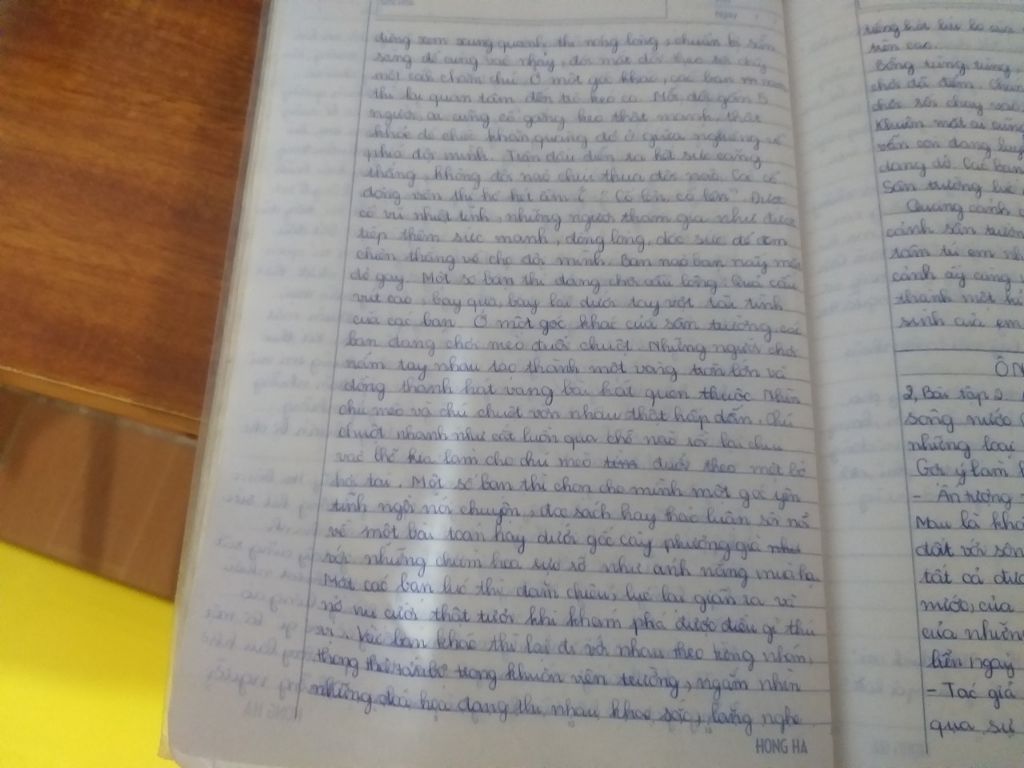 Ngày
đứng xem xung quanh thì nóng lòng, chuẩn bị sẵn
sàng để cùng vào nhảy, đôi mắt dõi theo
một cách chăm chú. Ở một góc khác, các bạn nam
thì lại quan tâm đến trò kéo co. Mỗi đội gồm 5
người, ai cũng cố gắng kéo thật mạnh, thật
khoẻ để chiếc khăn quàng đỏ ở giữa nghiêng về
phía đội mình. Trận đấu diễn ra hết sức căng
thẳng, không đội nào chịu thua đội nào. Các cổ
động viên thì hò hét ầm ĩ "Cố lên, cố lên". Được
cổ vũ nhiệt tình, những người tham gia như được
tiếp thêm sức mạnh, đồng lòng, dốc sức để đem
chiến thắng về cho đội mình. Bạn nào bạn nấy
đỏ gay. Một số bạn thì đang chơi cầu lông. Quả cầu
vút cao, bay qua, bay lại dưới tay vợt
của các bạn. Ở một góc khác của sân trường, các
bạn đang chơi mèo đuổi chuột. Những người chơi
nắm tay nhau tạo thành một vòng tròn lớn và
đồng thanh hát vang bài hát quen thuộc. Nhìn
chú mèo và chú chuột vờn nhau thật hấp dẫn. Chú
chuột nhanh như cắt luồn qua chỗ này rồi lại chui
vào chỗ kia làm cho chú mèo đuổi theo mệt bở
hơi tai. Một số bạn thì chọn cho mình một góc yên
tĩnh ngồi nói chuyện, đọc sách hay thảo luận sôi nổi
về một bài toán hay dưới gốc cây phượng già
với những chùm hoa rực rỡ như ánh nắng mùa hạ.
Mặt các bạn lúc thì đăm chiêu, lúc lại giãn ra và
nở nụ cười thật tươi khi khám phá được điều gì thú
vị. Vài bạn khác thì lại đi với nhau theo từng nhóm,
trong khuôn viên trường, ngắm nhìn
những đoá hoa đang thi nhau khoe sắc, lắng nghe
HONG HA
tiếng
trên cao.
Bỗng tùng, tùng,
chơi đã điểm.
chơi rồi chạy vào
Khuôn mặt ai cũng
vẫn còn đang
dang dở. Các bạn
Sân trường lúc
Quang cảnh
cảnh sân trường
tâm trí em
cảnh ấy càng
thành một
sinh của em
ÔN
2, Bài tập 2
sông nước
những loại
Gợi ý làm
- Ấn tượng
Mau là
đất với
tất cả
nước, của
của những
liền ngay
- Tác giả
qua sự